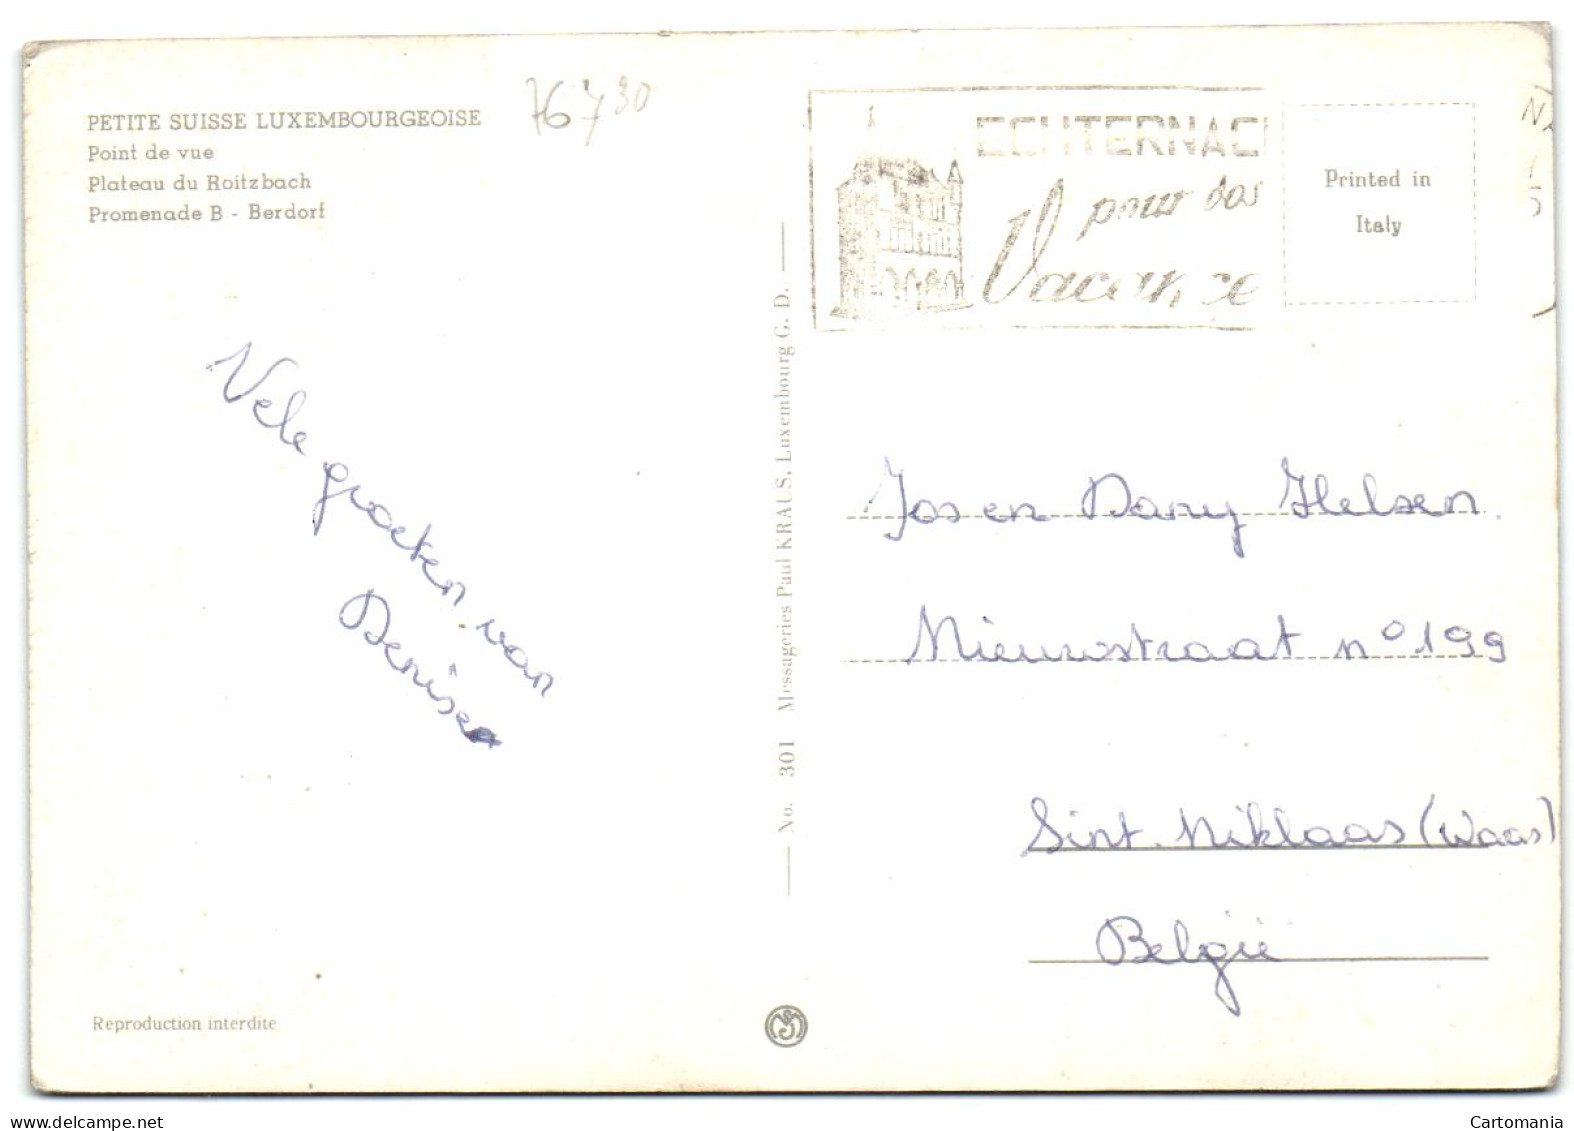 PETITE SUISSE LUXEMBOURGEOISE
Point de vue
Plateau du Roitzbach
Promenade B - Berdorf
76730
ECHTERNAC
pour vos
Vacance
Printed in
Italy
Vele groeten van
Denise
No. 301 Messageries Paul KRAUS, Luxembourg G. D.
Jos en Dany Helsen.
Nieuwstraat nº 199
Sint. Niklaas (Waas)
België
Reproduction interdite
Cartomania